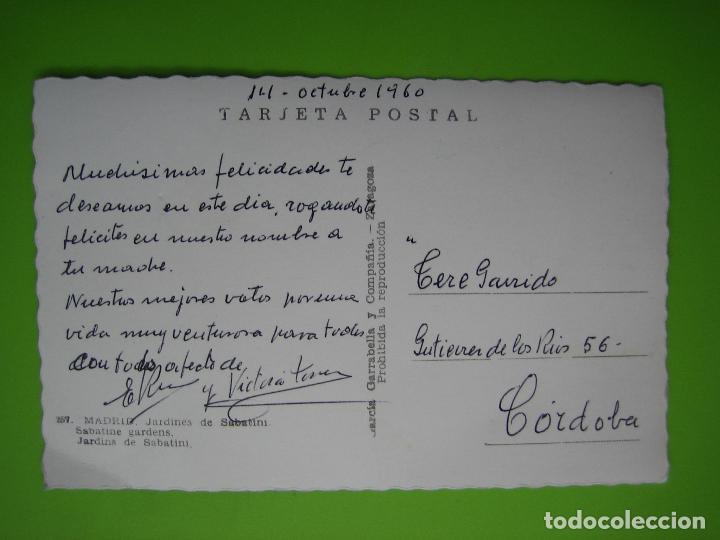 14 - octubre 1960
TARJETA POSTAL
Muchisimas felicidades te
deseamos en este dia, rogandote
felicites en nuestro nombre a
tu madre.
Nuestros mejores votos por una
vida muy venturosa para todos
con todo afecto de
y Victoria
257. MADRID. Jardines de Sabatini
Sabatine gardens.
Jardins de Sabatini.
García Garrabella y Compañía. - Zaragoza
Prohibida la reproducción
"
Tere Garrido
Gutierrez de los Rios 56-
Córdoba
todocoleccion.net